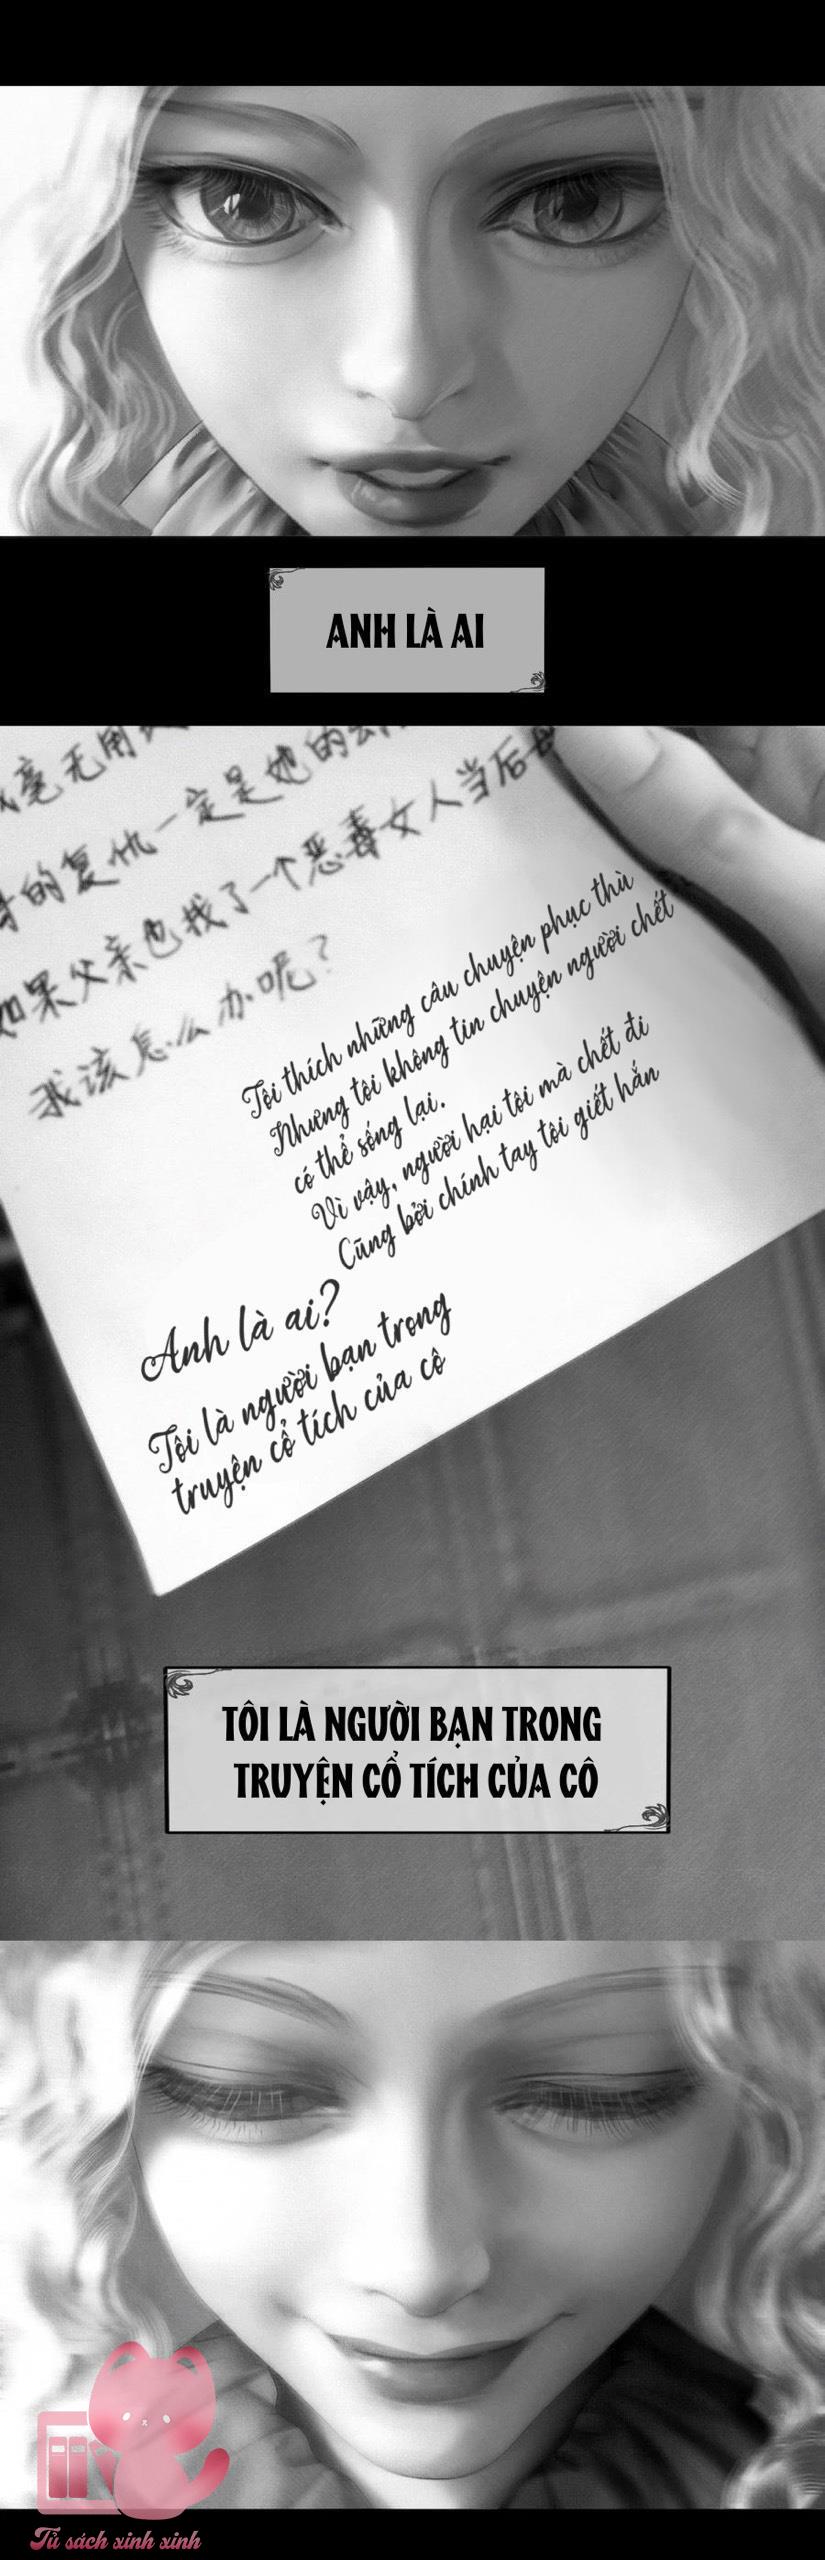 ANH LÀ AI
毫无用
的复仇一定是她的
如果父亲也找了一个恶毒女人当后母
我该怎么办呢？
Tôi thích những câu chuyện phục thù
Nhưng tôi không tin chuyện người chết
có thể sống lại.
Vì vậy, người hại tôi mà chết đi
Cũng bởi chính tay tôi giết hắn
Anh là ai?
Tôi là người bạn trong
truyện cổ tích của cô
TÔI LÀ NGƯỜI BẠN TRONG
TRUYỆN CỔ TÍCH CỦA CÔ
Tủ sách xinh xinh